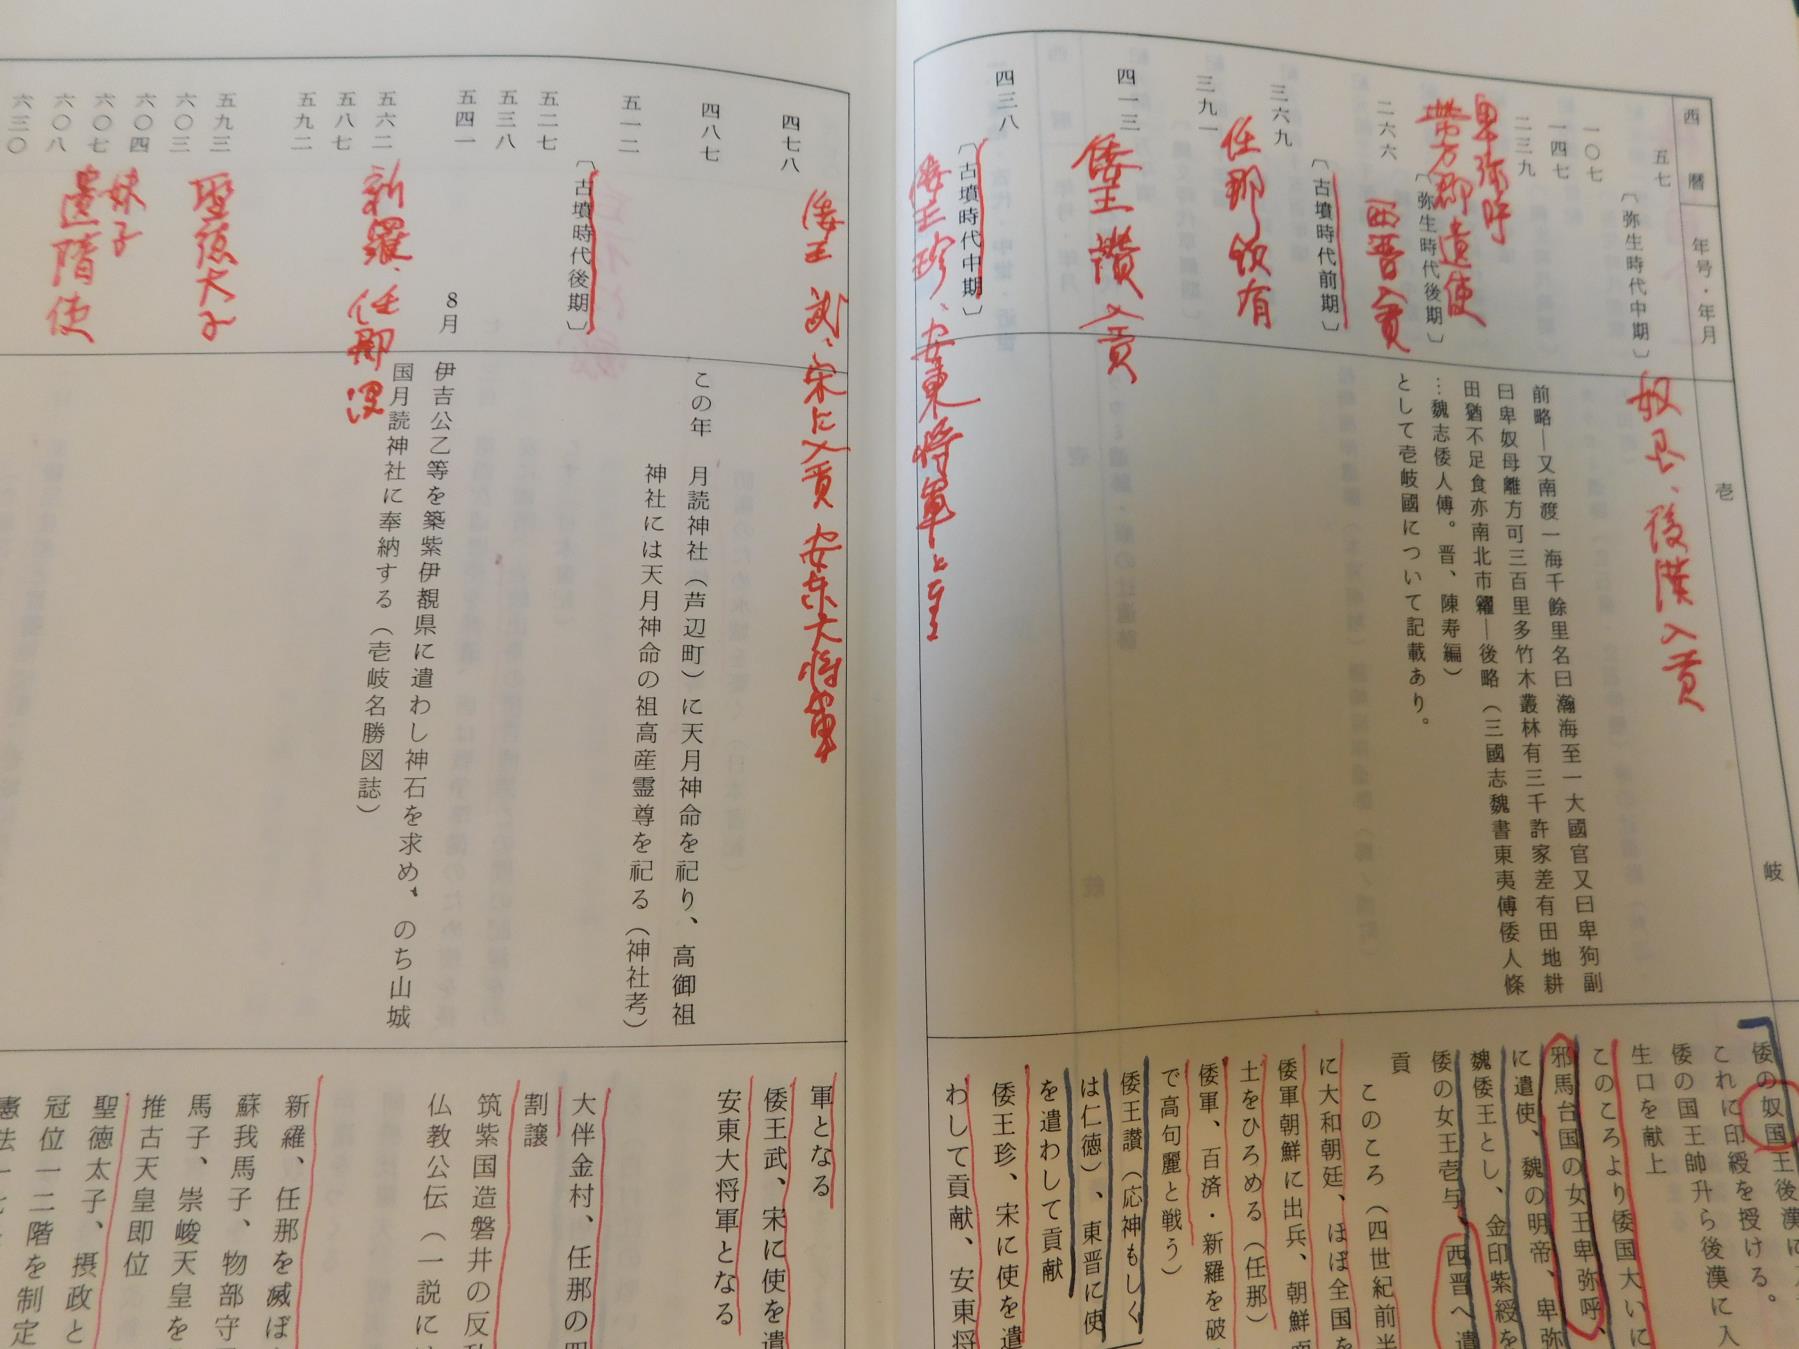 西暦
年号・年月
壱
岐
五七
〔弥生時代中期〕
奴国、後漢入貢
一〇七
一四七
二三九
卑弥呼
帯方郡遣使
〔弥生時代後期〕
前略―又南渡一海千餘里名曰瀚海至一大國官又曰卑狗副
曰卑奴母離方可三百里多竹木叢林有三千許家差有田地耕
田猶不足食亦南北市糴―後略（三國志魏書東夷傳倭人條
…魏志倭人傳。晋、陳寿編）
として壱岐國について記載あり。
二六六
西晋入貢
〔古墳時代前期〕
三六九
任那領有
三九一
四一三
倭王讃入貢
四三八
〔古墳時代中期〕
倭王珍、安東将軍と
倭の奴国王後漢に
これに印綬を授ける。
倭の国王帥升ら後漢に入
生口を献上
このころより倭国大いに
邪馬台国の女王卑弥呼、
に遣使、魏の明帝、卑弥
魏倭王とし、金印紫綬を
倭の女王壱与、西晋へ遣
貢
このころ（四世紀前半
に大和朝廷、ほぼ全国を
倭軍朝鮮に出兵、朝鮮
土をひろめる（任那）
倭軍、百済・新羅を破
で高句麗と戦う）
倭王讃（応神もしく
は仁徳）、東晋に使
を遣わして貢献
倭王珍、宋に使を遣
わして貢献、安東将
四七八
倭王武、宋に入貢 安東大将軍
四八七
この年　月読神社（芦辺町）に天月神命を祀り、高御祖
神社には天月神命の祖高産霊尊を祀る（神社考）
五一二
〔古墳時代後期〕
五二七
五三八
五四一
8月
伊吉公乙等を築紫伊覩県に遣わし神石を求め、のち山城
国月読神社に奉納する（壱岐名勝図誌）
五六二
新羅、任那没
五八七
五九二
五九三
聖徳太子
六〇三
六〇四
六〇七
妹子
遣隋使
六〇八
六三〇
軍となる
倭王武、宋に使を遣
安東大将軍となる
大伴金村、任那の四
割譲
筑紫国造磐井の反
仏教公伝（一説に
新羅、任那を滅ぼ
蘇我馬子、物部守
馬子、崇峻天皇を
推古天皇即位
聖徳太子、摂政と
冠位一二階を制定
憲法一七